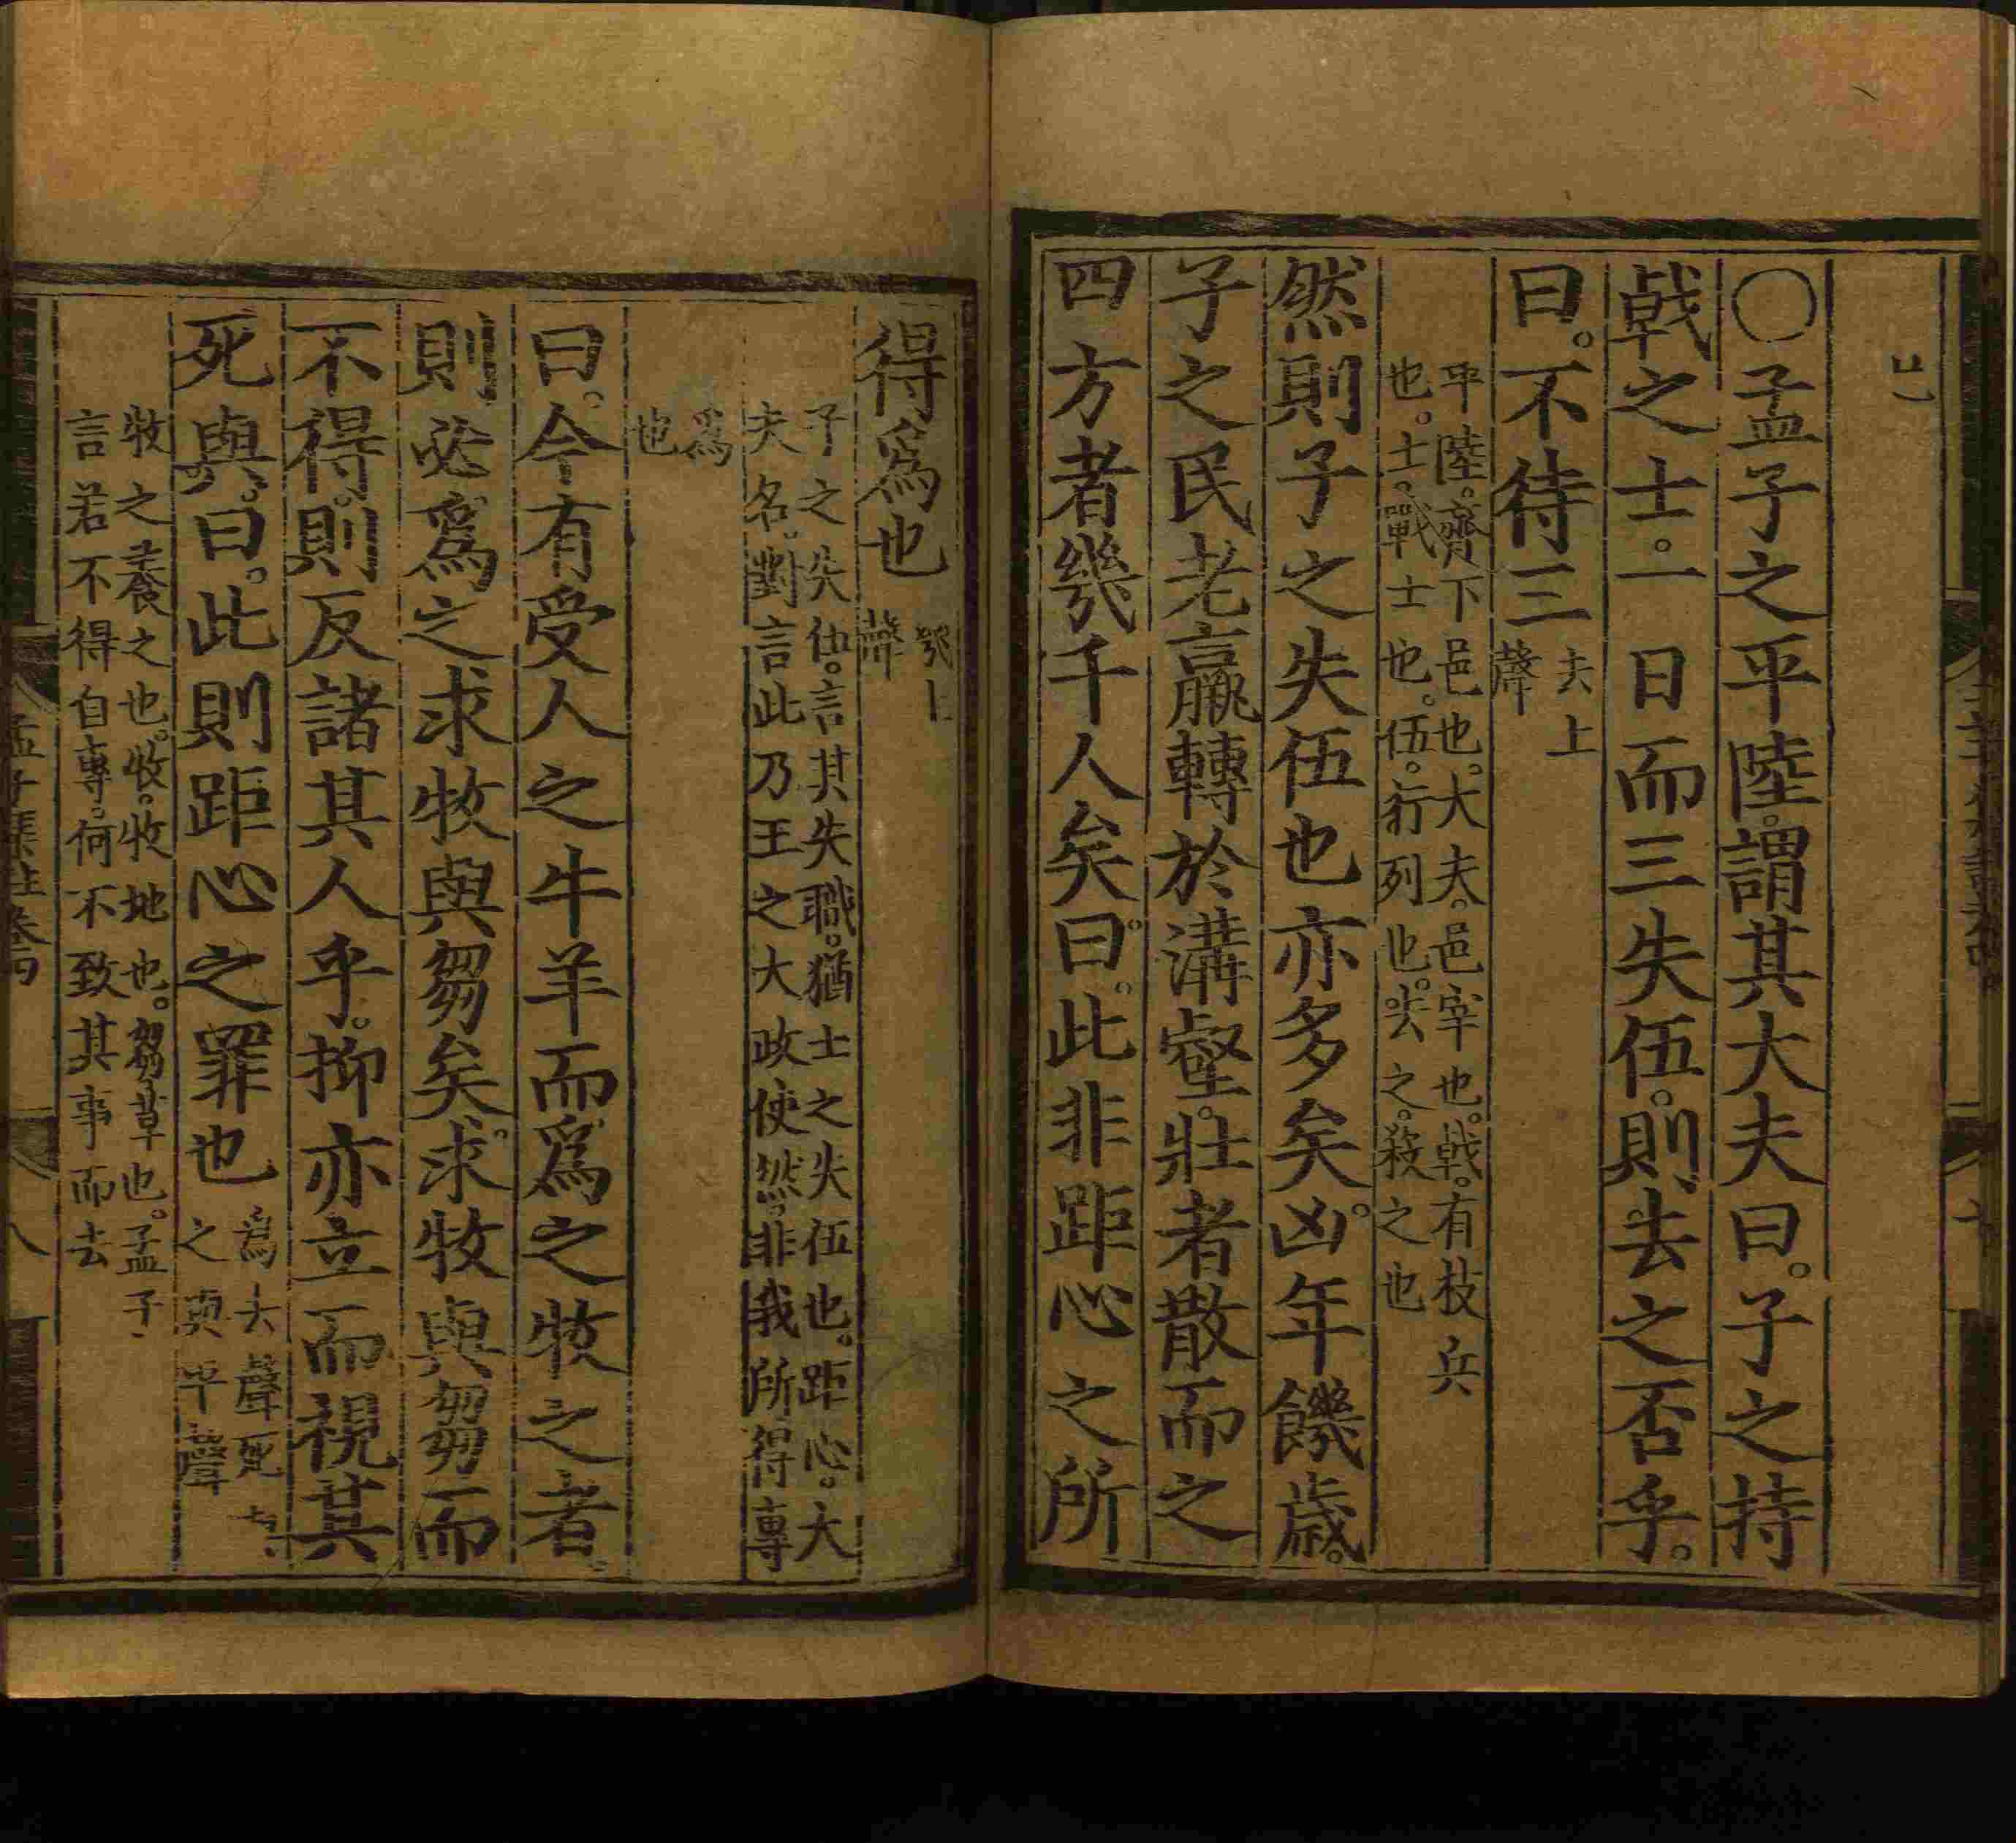 也
〇孟子之平陸。謂其大夫曰。子之持
戟之士。一日而三失伍。則去之否乎。
曰。不待三去上聲
平陸。齊下邑也。大夫。邑宰也。戟。有枝兵
也。士。戰士也。伍。行列也。去之。殺之也
然則子之失伍也亦多矣。凶年饑歲。
子之民老羸轉於溝壑。壯者散而之
四方者幾千人矣。曰。此非距心之所
得爲也幾上聲
子之失伍。言其失職。猶士之失伍也。距心。大
夫名。對言此乃王之大政使然。非我所得專
爲
也
曰。今有受人之牛羊而爲之牧之者。
則必爲之求牧與芻矣。求牧與芻而
不得。則反諸其人乎。抑亦立而視其
死與。曰。此則距心之罪也爲去聲死與之與平聲
牧之。養之也。牧。牧地也。芻。草也。孟子
言若不得自專。何不致其事而去
孟子集註卷四
八